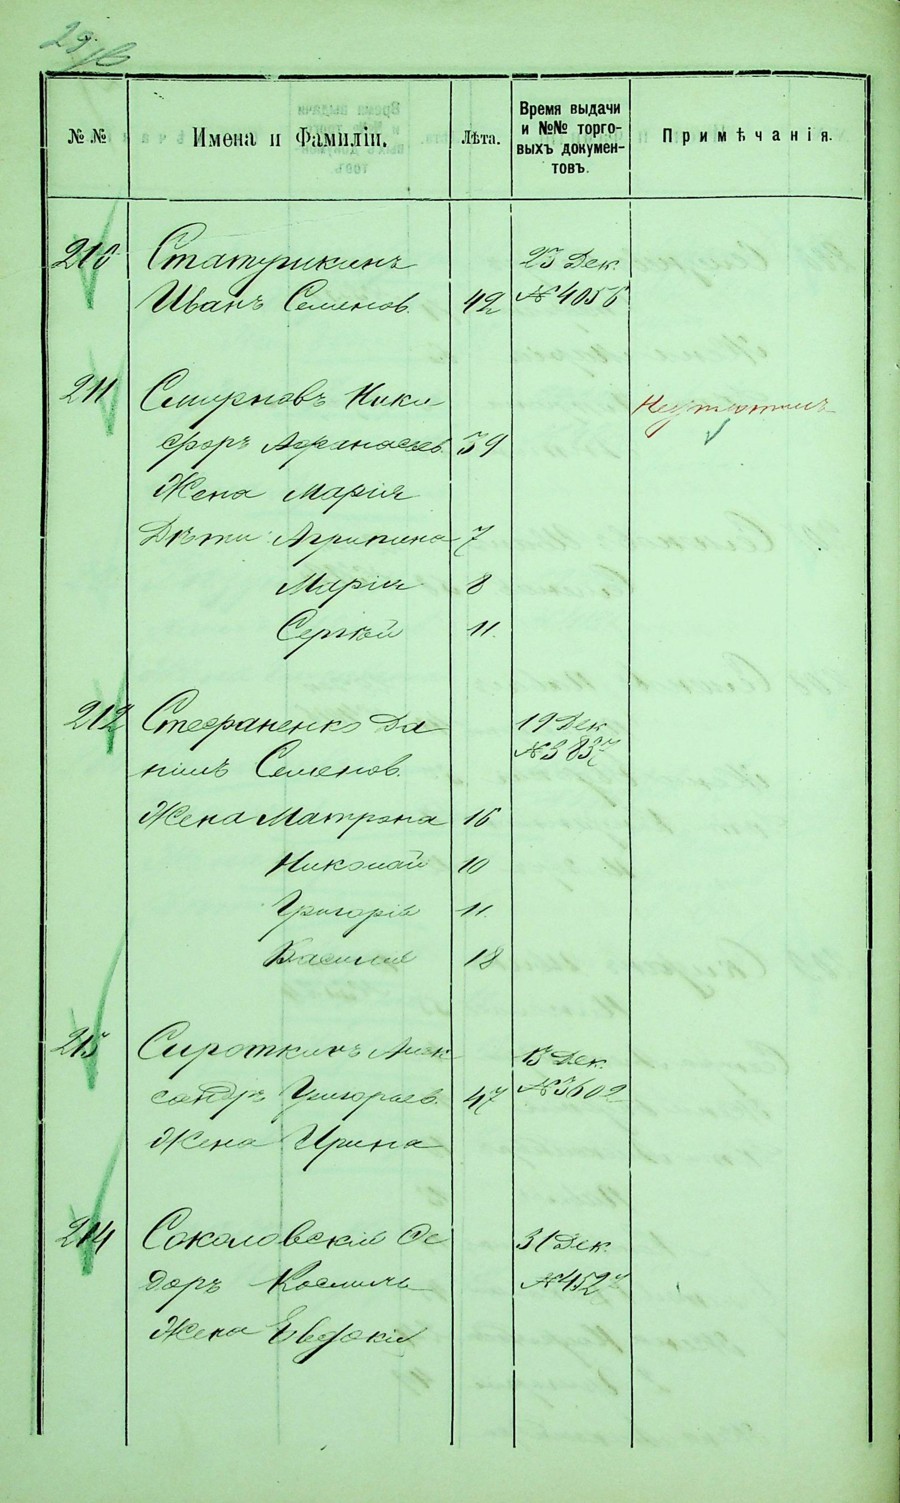 № №
Имена и Фамиліи.
Лѣта.
Время выдачи
и №№ торго-
выхъ докумен-
товъ.
Примѣчанія.
210 23 Дек.
Иванъ Семенов. 42 № 4056
211 Смирновъ Ники
форъ Афанасьев. 39
Жена Марія
Дѣти: Агрипина 7
Марія 8
Сергѣй 11.
212 Стефаненко Да 19 Дек.
нiилъ Семенов. № 3837
Жена Матрэна 16
Николай 10
Григорій 11
Василій 18
Сироткинъ Алек 13 Дек.
сандръ Григорьев. 47 № 3602
Жена Ирина
214 Соколовскій Фе 31 Дек.
доръ Космичъ
Жена Евдокія